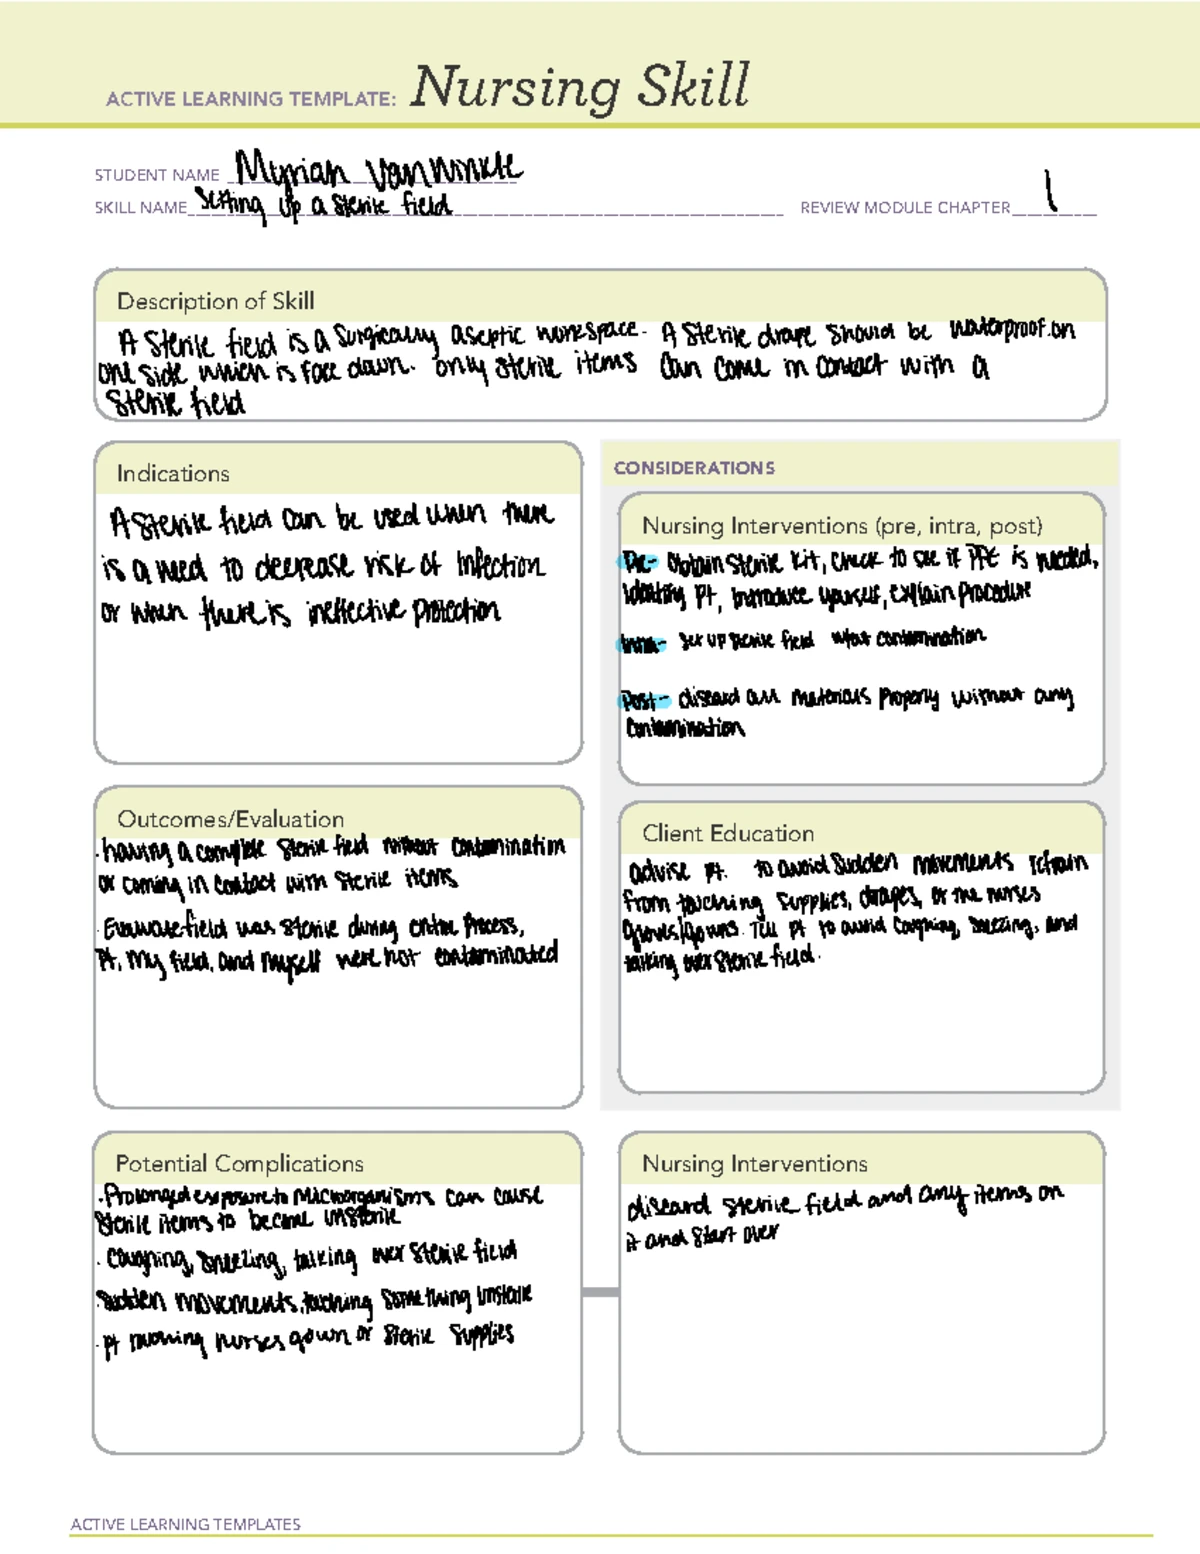 ACTIVE LEARNING TEMPLATE: Nursing Skill
STUDENT NAME Myriah VanWinkle
SKILL NAME Setting up a sterile field REVIEW MODULE CHAPTER 1
Description of Skill
A Sterile field is a Surgically aseptic workspace. A Sterile drape should be waterproof on
one side which is face down. only sterile items can come in contact with a
Sterile field
Indications
A sterile field can be used when there
is a need to decrease risk of infection
or when there is ineffective protection
CONSIDERATIONS
Nursing Interventions (pre, intra, post)
Pre- Obtain sterile kit, check to see if PPE is needed,
identify pt, introduce yourself, explain procedure
Intra- set up sterile field w/out contamination
Post- discard all materials properly without any
contamination
Outcomes/Evaluation
· having a complete sterile field without contamination
or coming in contact with sterile items
· Evaluate field was sterile during entire process,
Pt, my field, and myself were not contaminated
Client Education
advise pt. to avoid sudden movements refrain
from touching supplies, drapes, or the nurses
gloves/gowns. Tell pt to avoid coughing, sneezing, and
talking over sterile field.
Potential Complications
· Prolonged exposure to microorganisms can cause
sterile items to become unsterile
· Coughing, sneezing, talking over sterile field
· sudden movements, touching something unsterile
· pt touching nurses gown or sterile supplies
Nursing Interventions
discard sterile field and any items on
it and start over
ACTIVE LEARNING TEMPLATES